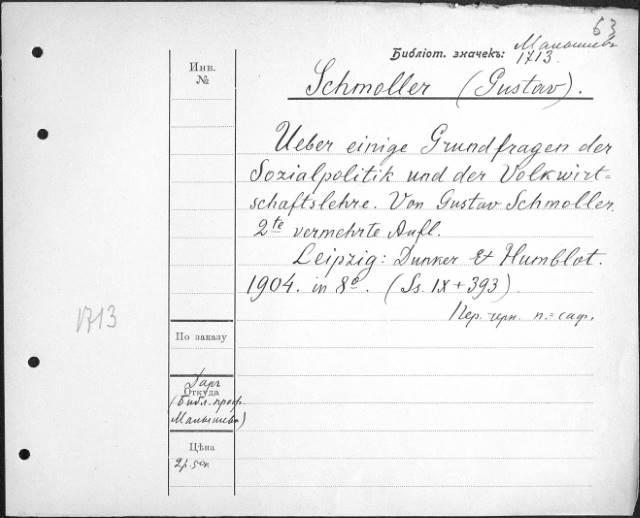 63
Малышевъ
Библіот. значекъ: 1713.
Инв.
№
Schmoller (Gustav).
Ueber einige Grundfragen der
Sozialpolitik und der Volkwirt=
schaftslehre. Von Gustav Schmoller.
2te vermehrte Aufl.
Leipzig: Dunker & Humblot.
1904. in 8o. (Ss. IX + 393)
Пер. черн. п.=саф.
1713
По заказу
Даръ
Откуда
(Библ. проф.
Малышева)
Цѣна
2р. 50к